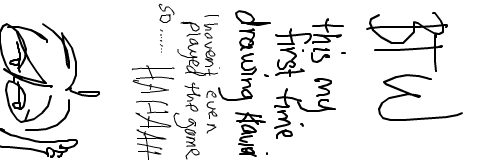 BTW
this my
first time
drawing Havia
I haven't even
played the game
so......
HAHAAH